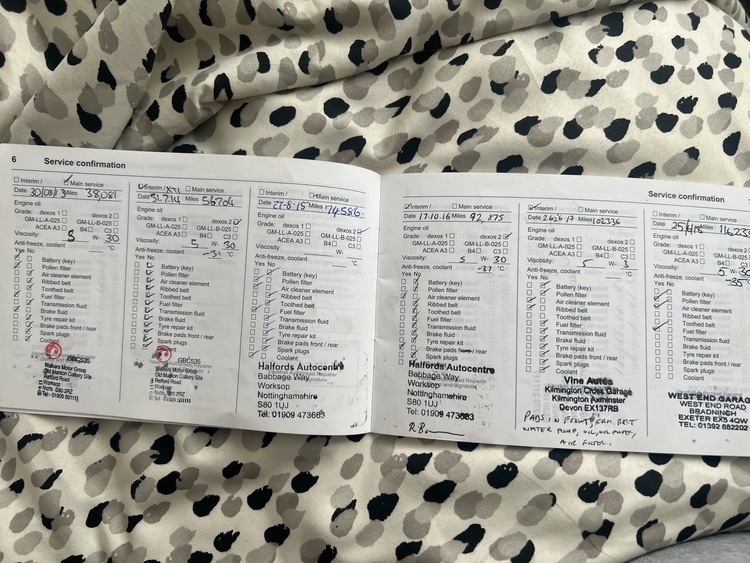 6 Service confirmation
Interim / Main service
Date 30/08/13 Miles 38,081
Engine oil
Grade: dexos 1 dexos 2
GM-LL-A-025 GM-LL-B-025
ACEA A3 B4 C3
Viscosity: 5 W- 30
Anti-freeze, coolant °C
Yes No
Battery (key)
Pollen filter
Air cleaner element
Ribbed belt
Toothed belt
Fuel filter
Transmission fluid
Brake fluid
Tyre repair kit
Brake pads front / rear
Spark plugs
Coolant
GBC535
Walters Motor Group
Old Manton Colliery Site
Retford Road
Worksop
Notts, S80 2RZ
Tel: 01909 501111
Interim / Main service
Date 31.7.14 Miles 56704
Engine oil
Grade: dexos 1 dexos 2
GM-LL-A-025 GM-LL-B-025
ACEA A3 B4 C3
Viscosity: 5 W- 30
Anti-freeze, coolant -31 °C
Yes No
Battery (key)
Pollen filter
Air cleaner element
Ribbed belt
Toothed belt
Fuel filter
Transmission fluid
Brake fluid
Tyre repair kit
Brake pads front / rear
Spark plugs
GBC535
Walters Motor Group
Old Manton Colliery Site
Retford Road
Worksop
Notts, S80 2RZ
Tel: 01909 501111
Interim / Main service
Date 27-8-15 Miles 74586
Engine oil
Grade: dexos 1 dexos 2
GM-LL-A-025 GM-LL-B-025
ACEA A3 B4 C3
Viscosity: W-
Anti-freeze, coolant °C
Yes No
Battery (key)
Pollen filter
Air cleaner element
Ribbed belt
Toothed belt
Fuel filter
Transmission fluid
Brake fluid
Tyre repair kit
Brake pads front / rear
Spark plugs
Coolant
Halfords Autocentre
Babbage Way
Worksop
Nottinghamshire
S80 1UJ
Tel: 01909 473663
Service confirmation
Interim / Main service
Date 17.10.16 Miles 92,875
Engine oil
Grade: dexos 1 dexos 2
GM-LL-A-025 GM-LL-B-025
ACEA A3 B4 C3
Viscosity: 5 W- 30
Anti-freeze, coolant -37 °C
Yes No
Battery (key)
Pollen filter
Air cleaner element
Ribbed belt
Toothed belt
Fuel filter
Transmission fluid
Brake fluid
Tyre repair kit
Brake pads front / rear
Spark plugs
Coolant
Halfords Autocentre
Babbage Way
Worksop
Nottinghamshire
S80 1UJ
Tel: 01909 473663
Interim / Main service
Date 262617 Miles 102336
Engine oil
Grade: dexos 1 dexos 2
GM-LL-A-025 GM-LL-B-025
ACEA A3 B4 C3
Viscosity: 5 W- 3
Anti-freeze, coolant °C
Yes No
Battery (key)
Pollen filter
Air cleaner element
Ribbed belt
Toothed belt
Fuel filter
Transmission fluid
Brake fluid
Tyre repair kit
Brake pads front / rear
Spark plugs
Coolant
Vine Autos
Kilmington Cross Garage
Kilmington Axminster
Devon EX137RB
PADS IN FRONT, CAM BELT
WATER PUMP, OIL,
AIR FILTER.
Interim / Main service
Date Miles
Engine oil
Grade: dexos 1
GM-LL-A-025 GM-LL-B-025
ACEA A3 B4
Viscosity: 5 W- 30
Anti-freeze, coolant -35
Yes No
Battery (key)
Pollen filter
Air cleaner element
Ribbed belt
Toothed belt
Fuel filter
Transmission fluid
Brake fluid
Tyre repair kit
Brake pads front / rear
Spark plugs
Coolant
WEST END GARAG
WEST END ROAD
BRADNINCH
EXETER EX5 4QW
TEL: 01392 882202